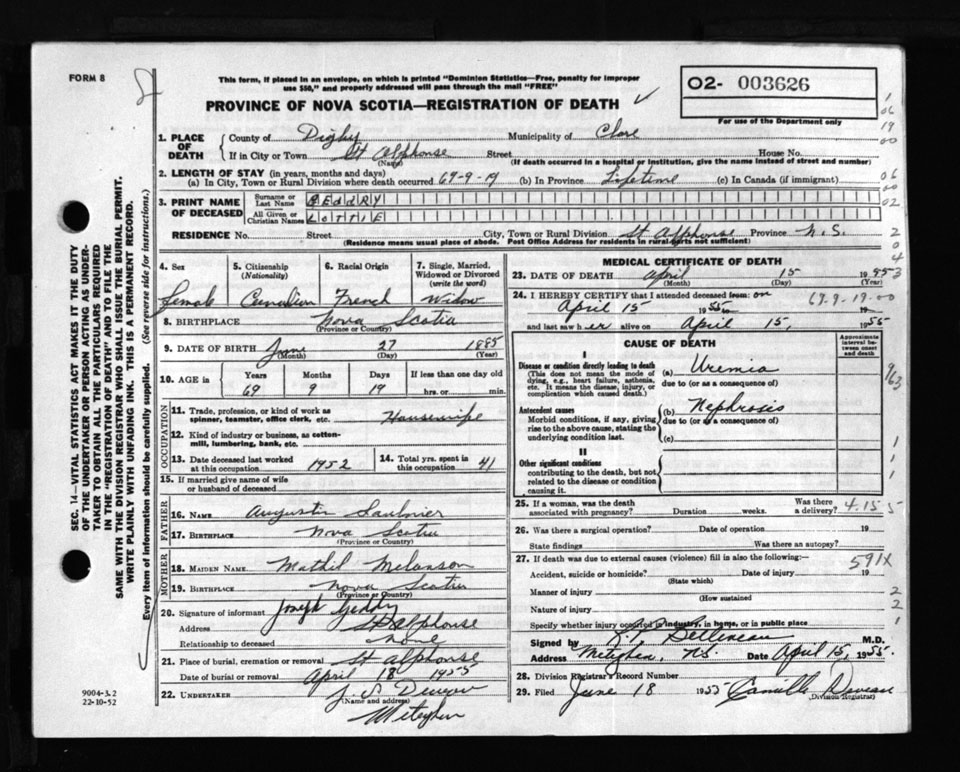 FORM 8
This form, if placed in an envelope, on which is printed "Dominion Statistics—Free, penalty for improper
use $50," and properly addressed will pass through the mail "FREE"
O2- 003626
For use of the Department only
PROVINCE OF NOVA SCOTIA—REGISTRATION OF DEATH
1. PLACE OF DEATH
County of Digby Municipality of Clare
If in City or Town St Alphonse Street House No.
(Name) (If death occurred in a hospital or institution, give the name instead of street and number)
2. LENGTH OF STAY (in years, months and days)
(a) In City, Town or Rural Division where death occurred 69-9-19 (b) In Province Lifetime (c) In Canada (if immigrant)
3. PRINT NAME OF DECEASED
Surname or Last Name
All Given or Christian Names LOTTIE
RESIDENCE No. Street City, Town or Rural Division St Alphonse Province N.S.
(Residence means usual place of abode. Post Office Address for residents in rural parts not sufficient)
4. Sex
Female
5. Citizenship
(Nationality)
Canadian
6. Racial Origin
French
7. Single, Married, Widowed or Divorced
(write the word)
Widow
8. BIRTHPLACE Nova Scotia
(Province or Country)
9. DATE OF BIRTH June 27 1885
(Month) (Day) (Year)
10. AGE in Years Months Days If less than one day old
69 9 19 hrs. or min.
OCCUPATION
11. Trade, profession, or kind of work as
spinner, teamster, office clerk, etc. Housewife
12. Kind of industry or business, as cotton-
mill, lumbering, bank, etc.
13. Date deceased last worked
at this occupation 1952
14. Total yrs. spent in
this occupation 41
15. If married give name of wife
or husband of deceased
FATHER
16. NAME Augustin Saulnier
17. BIRTHPLACE Nova Scotia
(Province or Country)
MOTHER
18. MAIDEN NAME Mathil Melanson
19. BIRTHPLACE Nova Scotia
(Province or Country)
20. Signature of informant Joseph
Address St Alphonse
Relationship to deceased none
21. Place of burial, cremation or removal St Alphonse
Date of burial or removal April 18 1955
22. UNDERTAKER
(Name and address)
Meteghan
MEDICAL CERTIFICATE OF DEATH
23. DATE OF DEATH April 15 1955
(Month) (Day) (Year)
24. I HEREBY CERTIFY that I attended deceased from: on
April 15 1955 to 19
69.9.19.00
and last saw her alive on April 15, 1955
CAUSE OF DEATH
Approximate interval between onset and death
I
Disease or condition directly leading to death
(This does not mean the mode of
dying, e.g., heart failure, asthenia,
etc. It means the disease, injury, or
complication which caused death.)
(a) Uremia
due to (or as a consequence of)
Antecedent causes
Morbid conditions, if any, giving
rise to the above cause, stating the
underlying condition last.
(b) Nephrosis
due to (or as a consequence of)
(c)
II
Other significant conditions
contributing to the death, but not
related to the disease or condition
causing it.
25. If a woman, was the death
associated with pregnancy? Duration weeks. Was there
a delivery?
4.15 5
26. Was there a surgical operation? Date of operation 19
State findings Was there an autopsy?
27. If death was due to external causes (violence) fill in also the following:—
591X
Accident, suicide or homicide? Date of injury 19
(State which)
Manner of injury
(How sustained
Nature of injury
Specify whether injury occurred in industry, in home, or in public place
Signed by M.D.
Address Meteghan, N.S. Date April 15, 1955.
28. Division Registrar's Record Number
29. Filed June 18 1955 Camille Deveau
(Division Registrar)
SEC. 14—VITAL STATISTICS ACT MAKES IT THE DUTY
OF THE UNDERTAKER OR PERSON ACTING AS UNDER-
TAKER TO OBTAIN ALL THE PARTICULARS REQUIRED
IN THE "REGISTRATION OF DEATH" AND TO FILE THE
SAME WITH THE DIVISION REGISTRAR WHO SHALL ISSUE THE BURIAL PERMIT.
WRITE PLAINLY WITH UNFADING INK. THIS IS A PERMANENT RECORD.
Every item of information should be carefully supplied. (See reverse side for instructions.)
9004-3.2
22-10-52